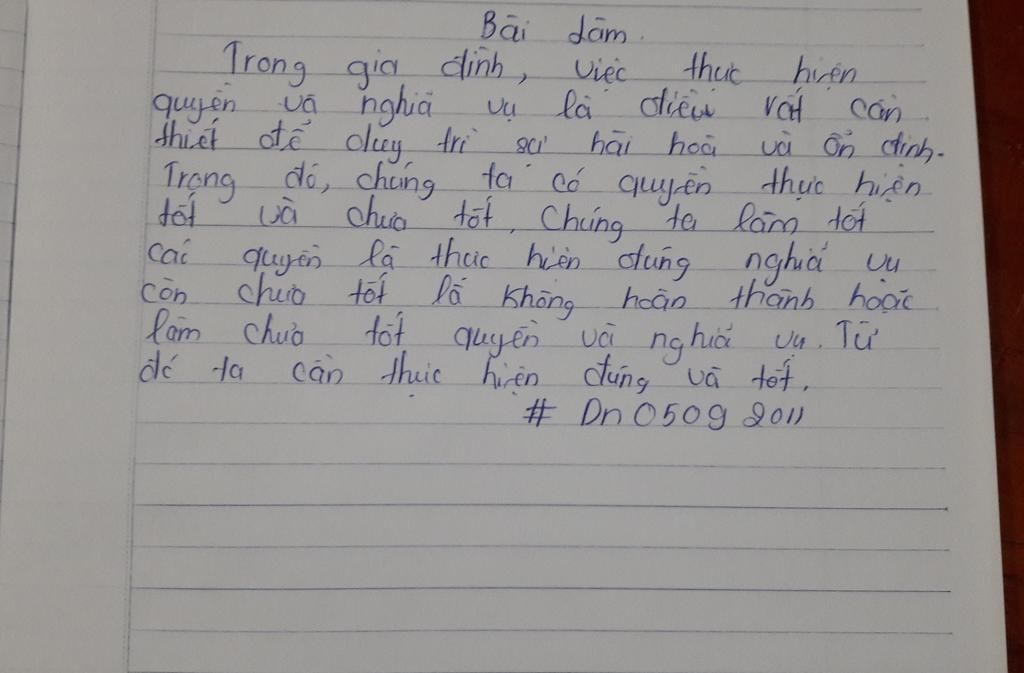 Bài làm.
Trong gia đình, việc thực hiện
quyền và nghĩa vụ là điều rất cần
thiết để duy trì sự hài hoà và ổn định.
Trong đó, chúng ta có quyền thực hiện
tốt và chưa tốt. Chúng ta làm tốt
các quyền là thực hiện đúng nghĩa vụ
còn chưa tốt là không hoàn thành hoặc
làm chưa tốt quyền và nghĩa vụ. Từ
đó ta cần thực hiện đúng và tốt.
# Dn05092011